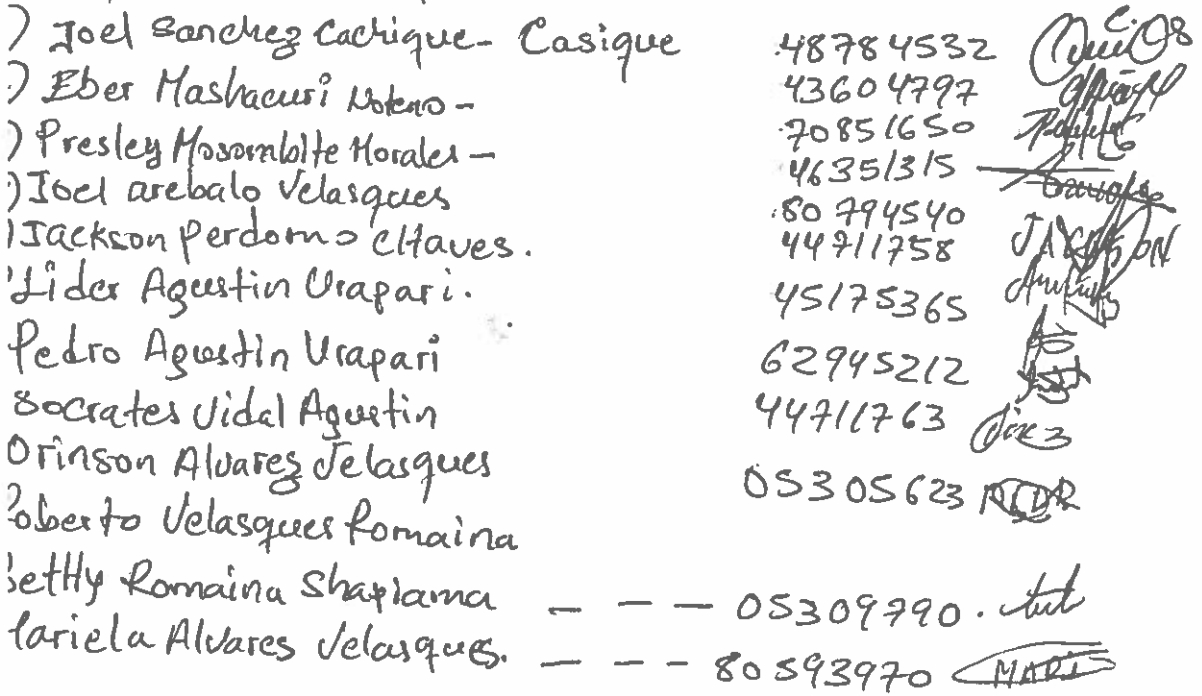 ) Joel Sanchez Cachique - Casique 48784532
) Eber Mashacuri Noteno - 43604797
) Presley Mosombite Morales - 70851650
) Joel arebalo Velasques 46351315
) Jackson Perdomo CHaves. 80794540
Lider Agustin Urapari. 44711758 JACKSON
Pedro Agustin Urapari 45175365
Socrates Vidal Agustin 62945212
Orinson Alvarez Velasques 44711763
Roberto Velasques Romaina 05305623
Betty Romaina Shapiama - - - 05309790.
Mariela Alvares Velasques. - - - 80593970 MARIS